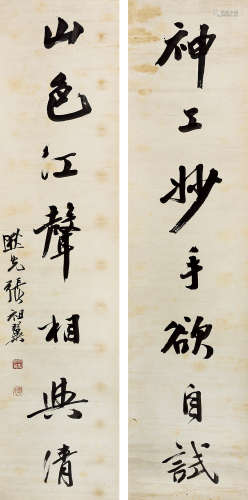 神工妙手欲自試
山色江聲相與清
張祖翼